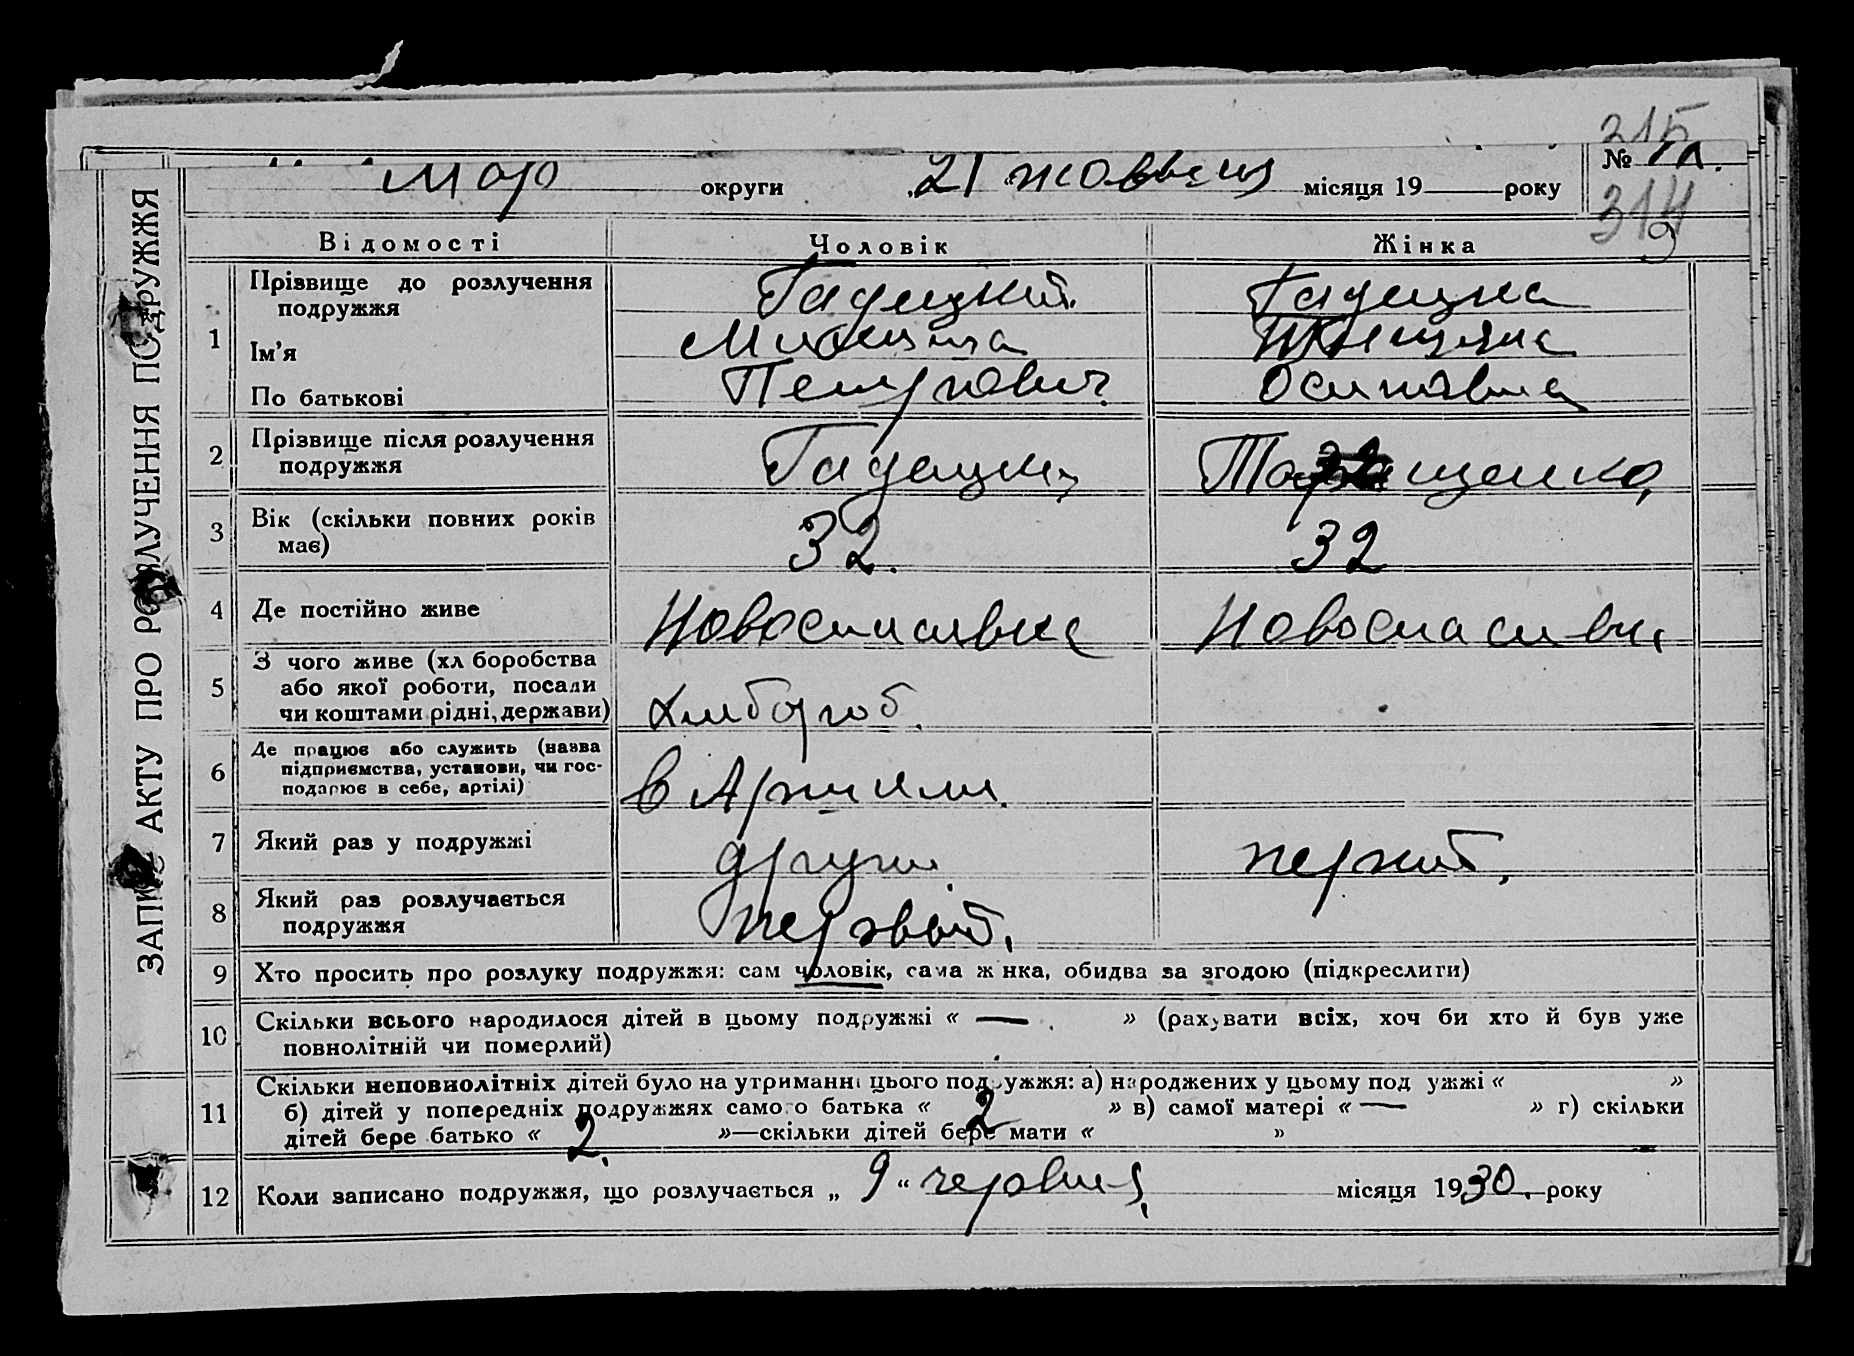 315
Мар округи „21 жовтня місяця 19 року № 1а.
314
ЗАПИС АКТУ ПРО РОЗЛУЧЕННЯ ПОДРУЖЖЯ
Відомості Чоловік Жінка
1 Прізвище до розлучення
подружжя Гадецкий. Гадецка
Ім’я Микита
По батькові Петрович. Осиповна
2 Прізвище після розлучення
подружжя Гадецкий
3 Вік (скільки повних років
має) 32. 32
4 Де постійно живе Новоспасивка Новоспасивка
5 З чого живе (хл боробства
або якої роботи, посади
чи коштами рідні, держави) хлибороб.
6 Де працює або служить (назва
підприємства, установи, чи гос-
подарює в себе, артілі) в Артили.
7 Який раз у подружжі други. перший.
8 Який раз розлучається
подружжя первый.
9 Хто просить про розлуку подружжя: сам чоловік, сама жінка, обидва за згодою (підкреслити)
10 Скільки всього народилося дітей в цьому подружжі « — . » (рахувати всіх, хоч би хто й був уже
повнолітній чи померлий)
11 Скільки неповнолітніх дітей було на утриманні цього подружжя: а) народжених у цьому подружжі « »
б) дітей у попередніх подружжях самого батька « 2 » в) самої матері « — » г) скільки
дітей бере батько « 2. »—скільки дітей бере мати « »
12 Коли записано подружжя, що розлучається „ 9 “ червня, місяця 1930. року